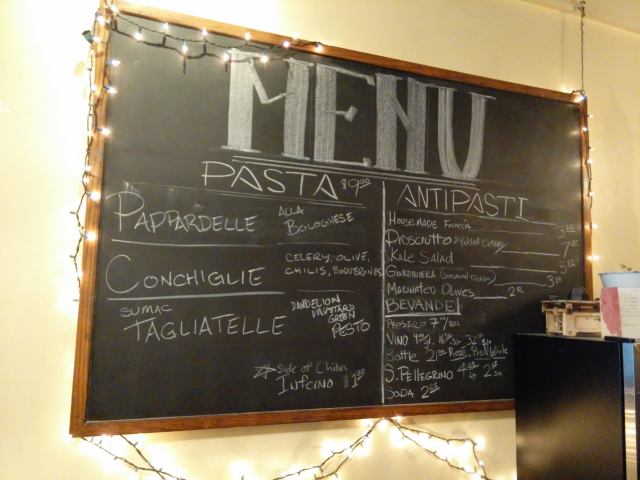 MENU
PASTA $9.00
PAPPARDELLE ALLA BOLOGNESE
CONCHIGLIE CELERY, OLIVE, CHILIS, BOQUERONES
SUMAC TAGLIATELLE DANDELION MUSTARD GREEN PESTO
Side of Chilis
Inferno $1.00
ANTIPASTI
HOUSEMADE Focaccia 3
Prosciutto Pickled Celery 7
Kale Salad 5
GIARDINIERA 3
MARINATED OLIVES 2
BEVANDE
PROSECCO 7
VINO
Bottle 21 Rosé, Red, White
S. PELLEGRINO 4 2
SODA 2